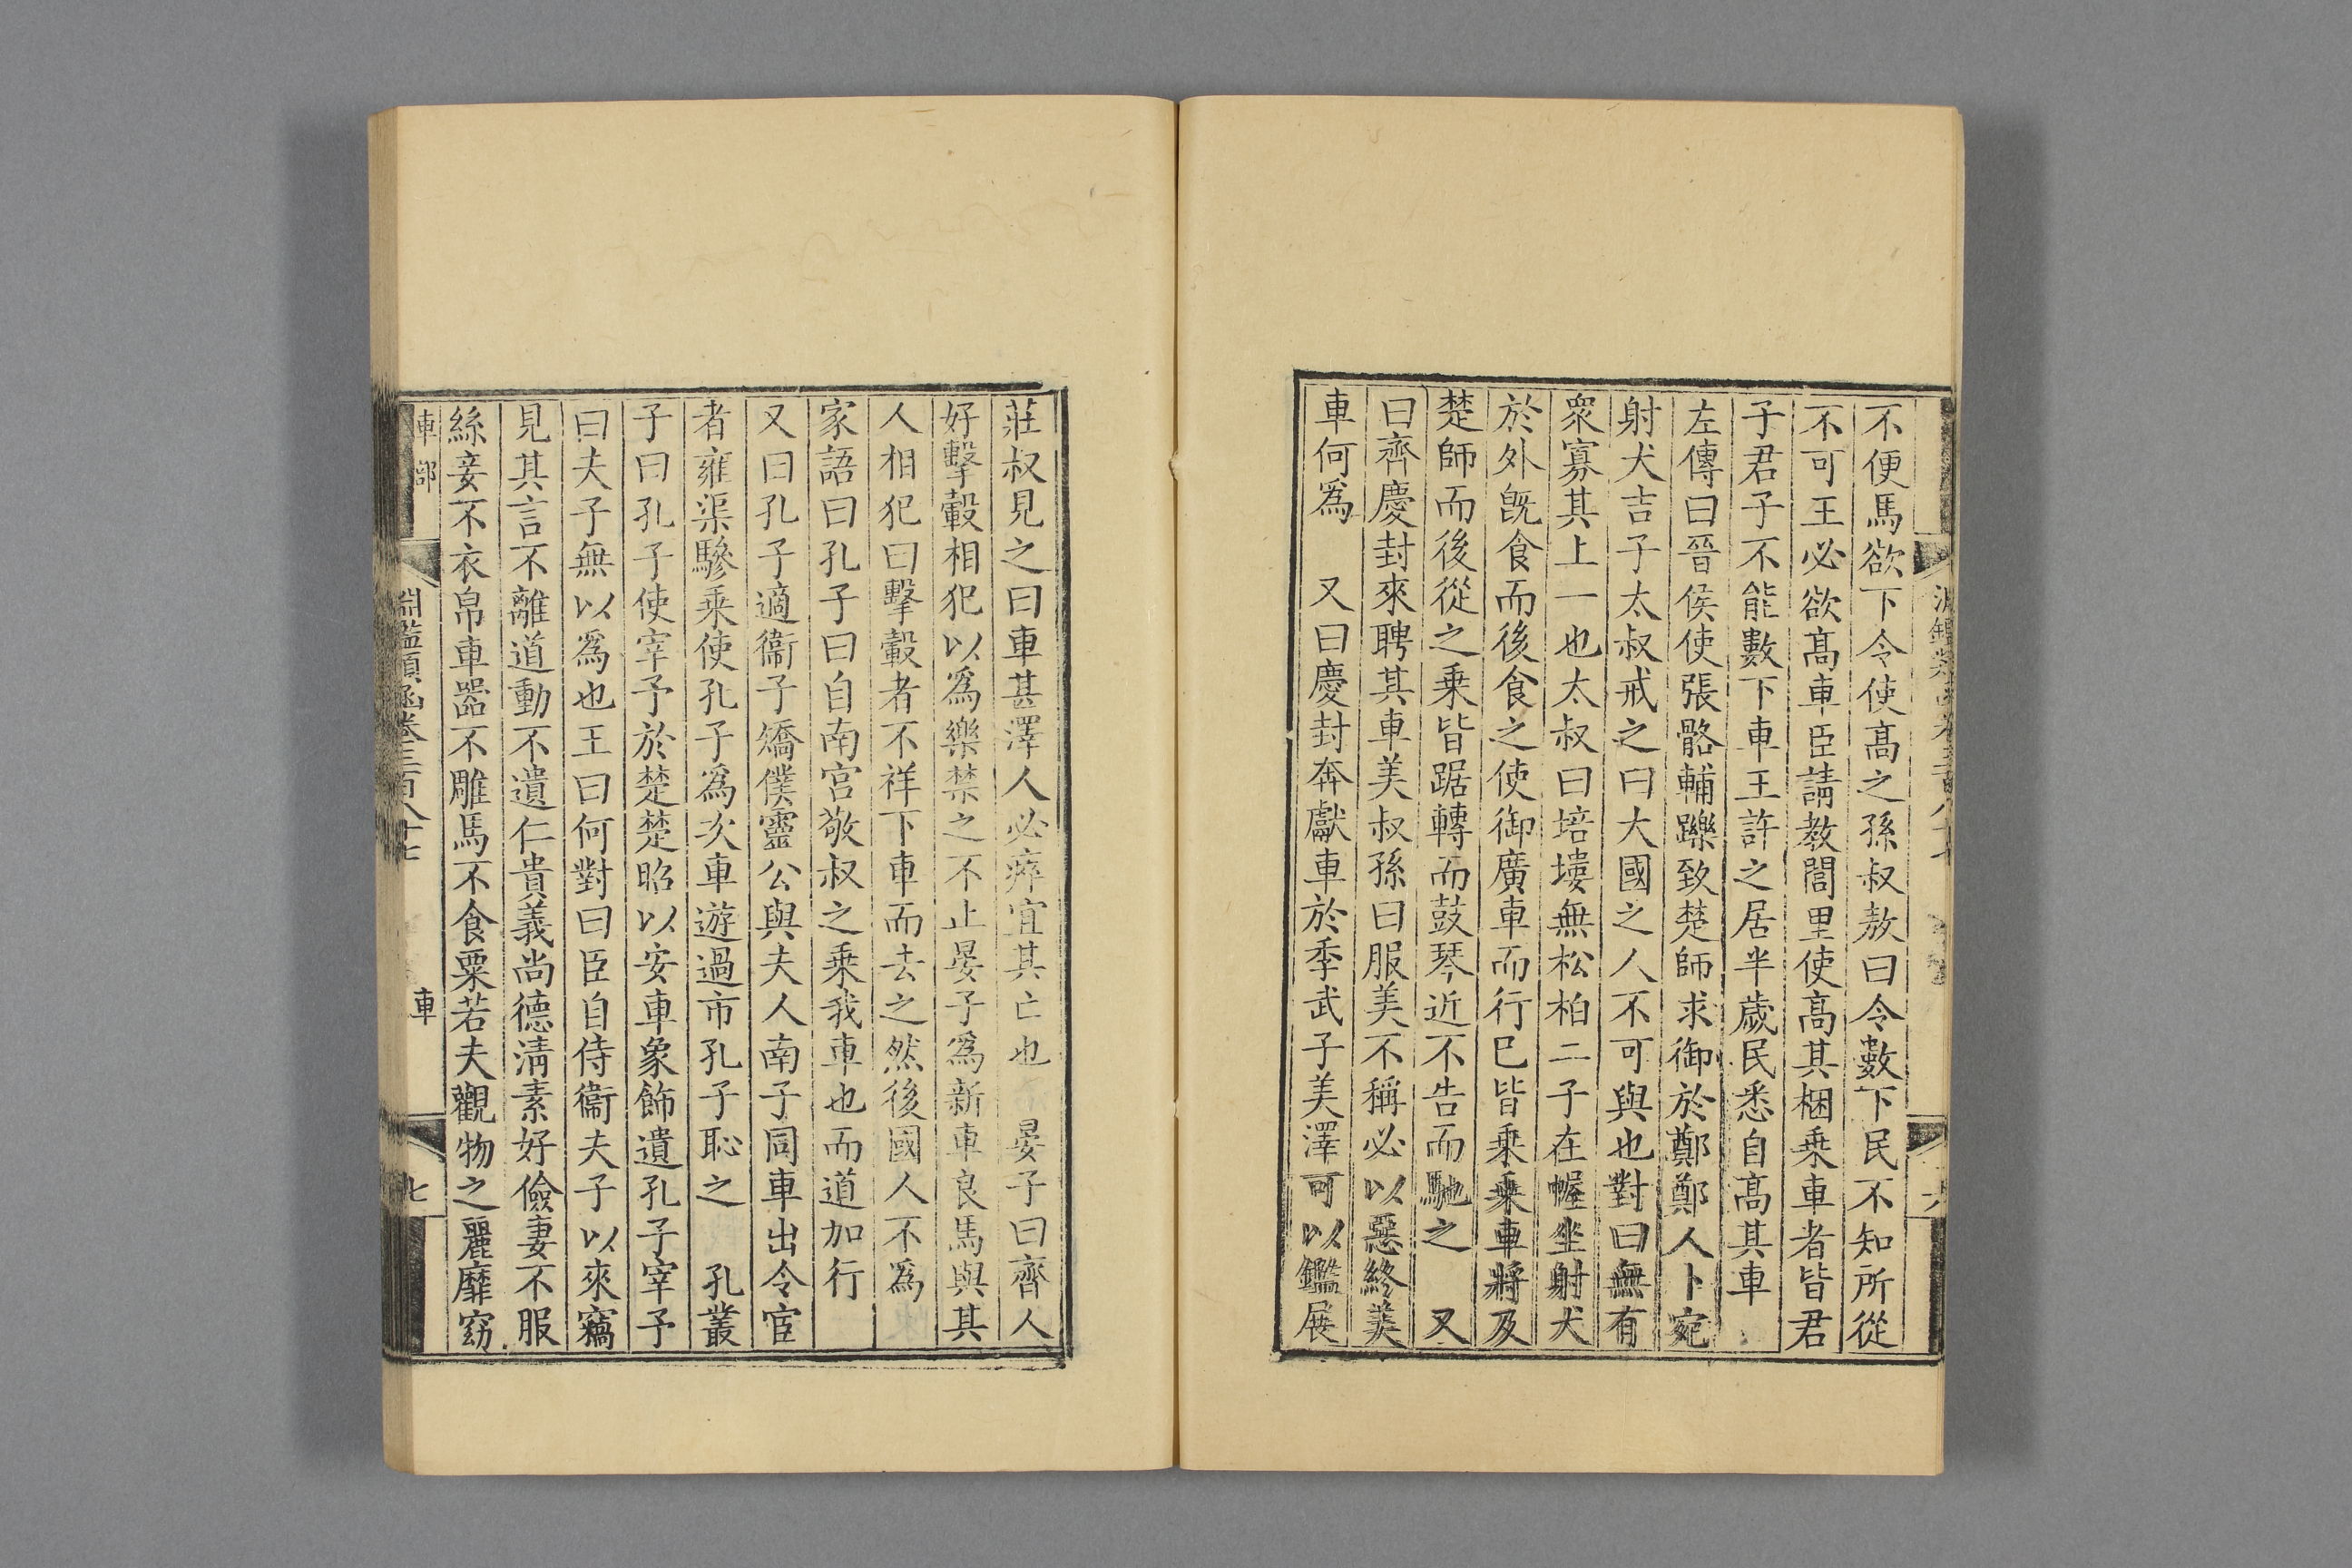 不便馬欲下令使髙之孫叔敖曰令數下民不知所從
不可王必欲髙車臣請教閭里使髙其梱乗車者皆君
子君子不能數下車王許之居半歲民悉自髙其車
左傳曰晉侯使張骼輔躒致楚師求御於鄭鄭人卜宛
射犬吉子太叔戒之曰大國之人不可與也對曰無有
衆寡其上一也太叔曰培塿無松柏二子在幄坐射犬
於外既食而後食之使御廣車而行巳皆乗乗車將及
楚師而後從之乗皆踞轉而鼓琴近不告而馳之　又
曰齊慶封來聘其車美叔孫曰服美不稱必以惡終美
車何爲　又曰慶封奔獻車於季武子美澤可以鑑展
莊叔見之曰車甚澤人必瘁宜其亡也　晏子曰齊人
好擊轂相犯以爲樂禁之不止晏子爲新車良馬與其
人相犯曰擊轂者不祥下車而去之然後國人不爲
家語曰孔子曰自南宫敬叔之乗我車也而道加行
又曰孔子適衞子矯僕靈公與夫人南子同車出令宦
者雍渠驂乗使孔子爲次車遊過市孔子恥之　孔叢
子曰孔子使宰予於楚楚昭以安車象飾遺孔子宰予
曰夫子無以爲也王曰何對曰臣自侍衞夫子以來竊
見其言不離道動不遺仁貴義尚德淸素好儉妻不服
絲妾不衣帛車噐不雕馬不食粟若夫觀物之麗靡窈
車部　淵鑑類函卷三百八十七　車　七